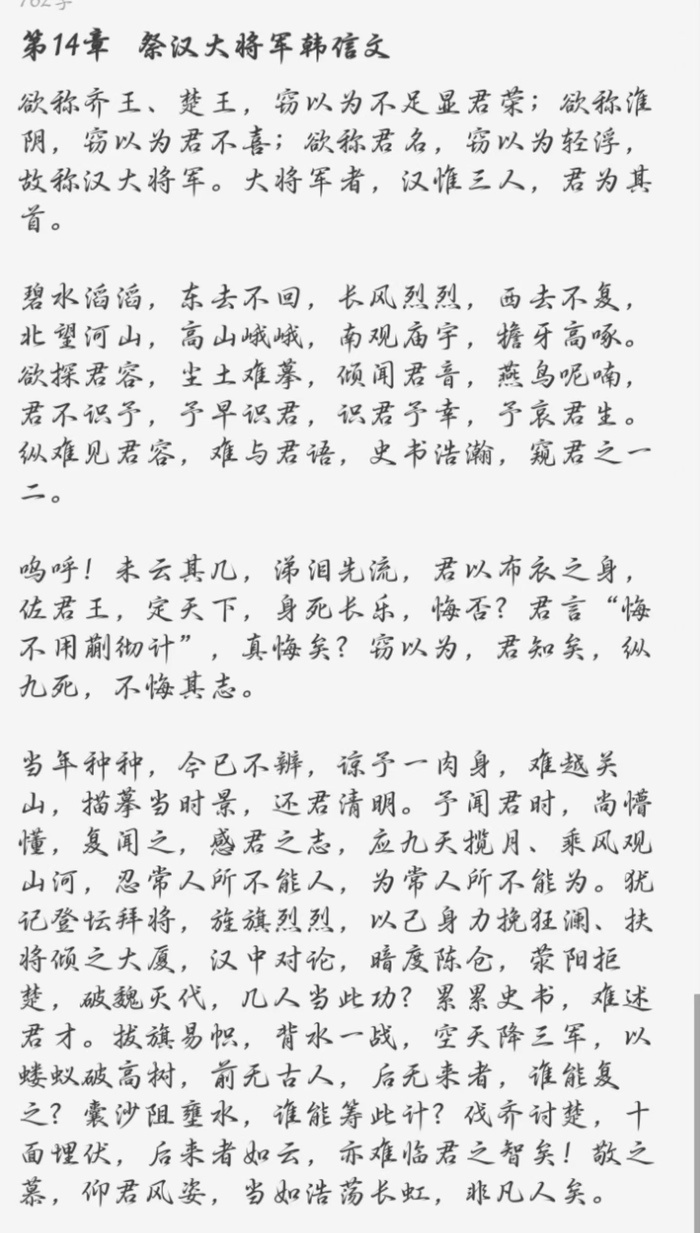 762字
第14章 祭汉大将军韩信文
欲称齐王、楚王，窃以为不足显君荣；欲称淮
阴，窃以为君不喜；欲称君名，窃以为轻浮，
故称汉大将军。大将军者，汉惟三人，君为其
首。
碧水滔滔，东去不回，长风烈烈，西去不复，
北望河山，高山峨峨，南观庙宇，檐牙高啄。
欲探君容，尘土难摹，倾闻君音，燕鸟呢喃，
君不识予，予早识君，识君予幸，予哀君生。
纵难见君容，难与君语，史书浩瀚，窥君之一
二。
呜呼！未云其几，涕泪先流，君以布衣之身，
佐君王，定天下，身死长乐，悔否？君言“悔
不用蒯彻计”，真悔矣？窃以为，君知矣，纵
九死，不悔其志。
当年种种，今已不辨，谅予一肉身，难越关
山，描摹当时景，还君清明。予闻君时，尚懵
懂，复闻之，感君之志，应九天揽月、乘风观
山河，忍常人所不能人，为常人所不能为。犹
记登坛拜将，旌旗烈烈，以己身力挽狂澜、扶
将倾之大厦，汉中对论，暗度陈仓，荥阳拒
楚，破魏灭代，几人当此功？累累史书，难述
君才。拔旗易帜，背水一战，空天降三军，以
蝼蚁破高树，前无古人，后无来者，谁能复
之？囊沙阻壅水，谁能筹此计？伐齐讨楚，十
面埋伏，后来者如云，亦难临君之智矣！敬之
慕，仰君风姿，当如浩荡长虹，非凡人矣。